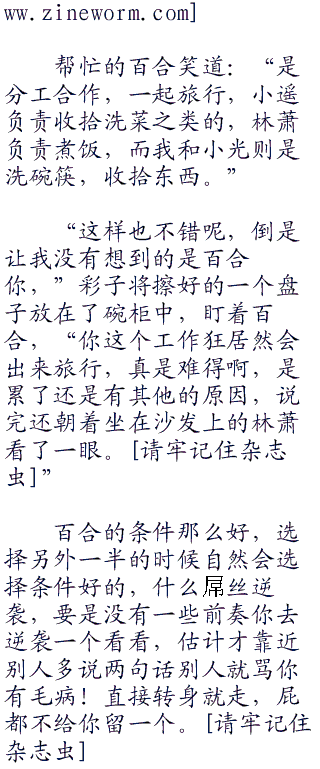 ww.zineworm.com]
帮忙的百合笑道：“是
分工合作，一起旅行，小遥
负责收拾洗菜之类的，林萧
负责煮饭，而我和小光则是
洗碗筷，收拾东西。”
“这样也不错呢，倒是
让我没有想到的是百合
你，”彩子将擦好的一个盘
子放在了碗柜中，盯着百
合，“你这个工作狂居然会
出来旅行，真是难得啊，是
累了还是有其他的原因，说
完还朝着坐在沙发上的林萧
看了一眼。[请牢记住杂志
虫]”
百合的条件那么好，选
择另外一半的时候自然会选
择条件好的，什么屌丝逆
袭，要是没有一些前奏你去
逆袭一个看看，估计才靠近
别人多说两句话别人就骂你
有毛病！直接转身就走，屁
都不给你留一个。[请牢记住
杂志虫]